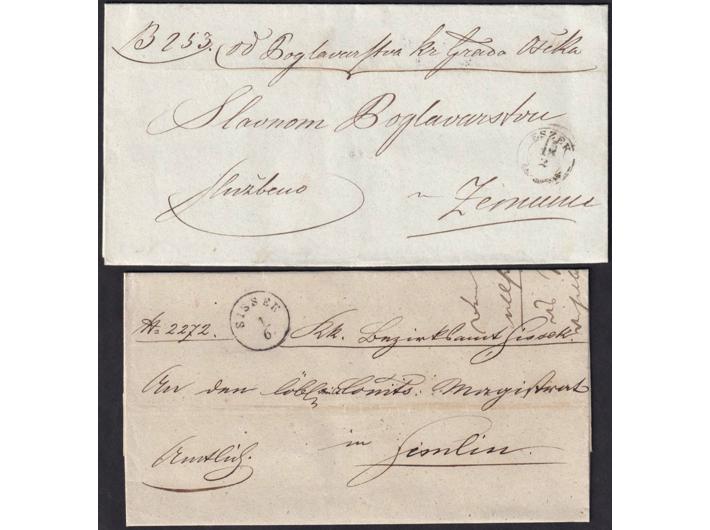 B 253. od Poglavarstva kr. Grada Oseka
Slavnom Poglavarstvu
ESZEK
18
2
Službeno
u Zemunu
SISSEK
1
6
No 2272. Kk. Bezirksamt Sissek.
An den löbl. Comts: Magistrat
in
Amtlich. Semlin.